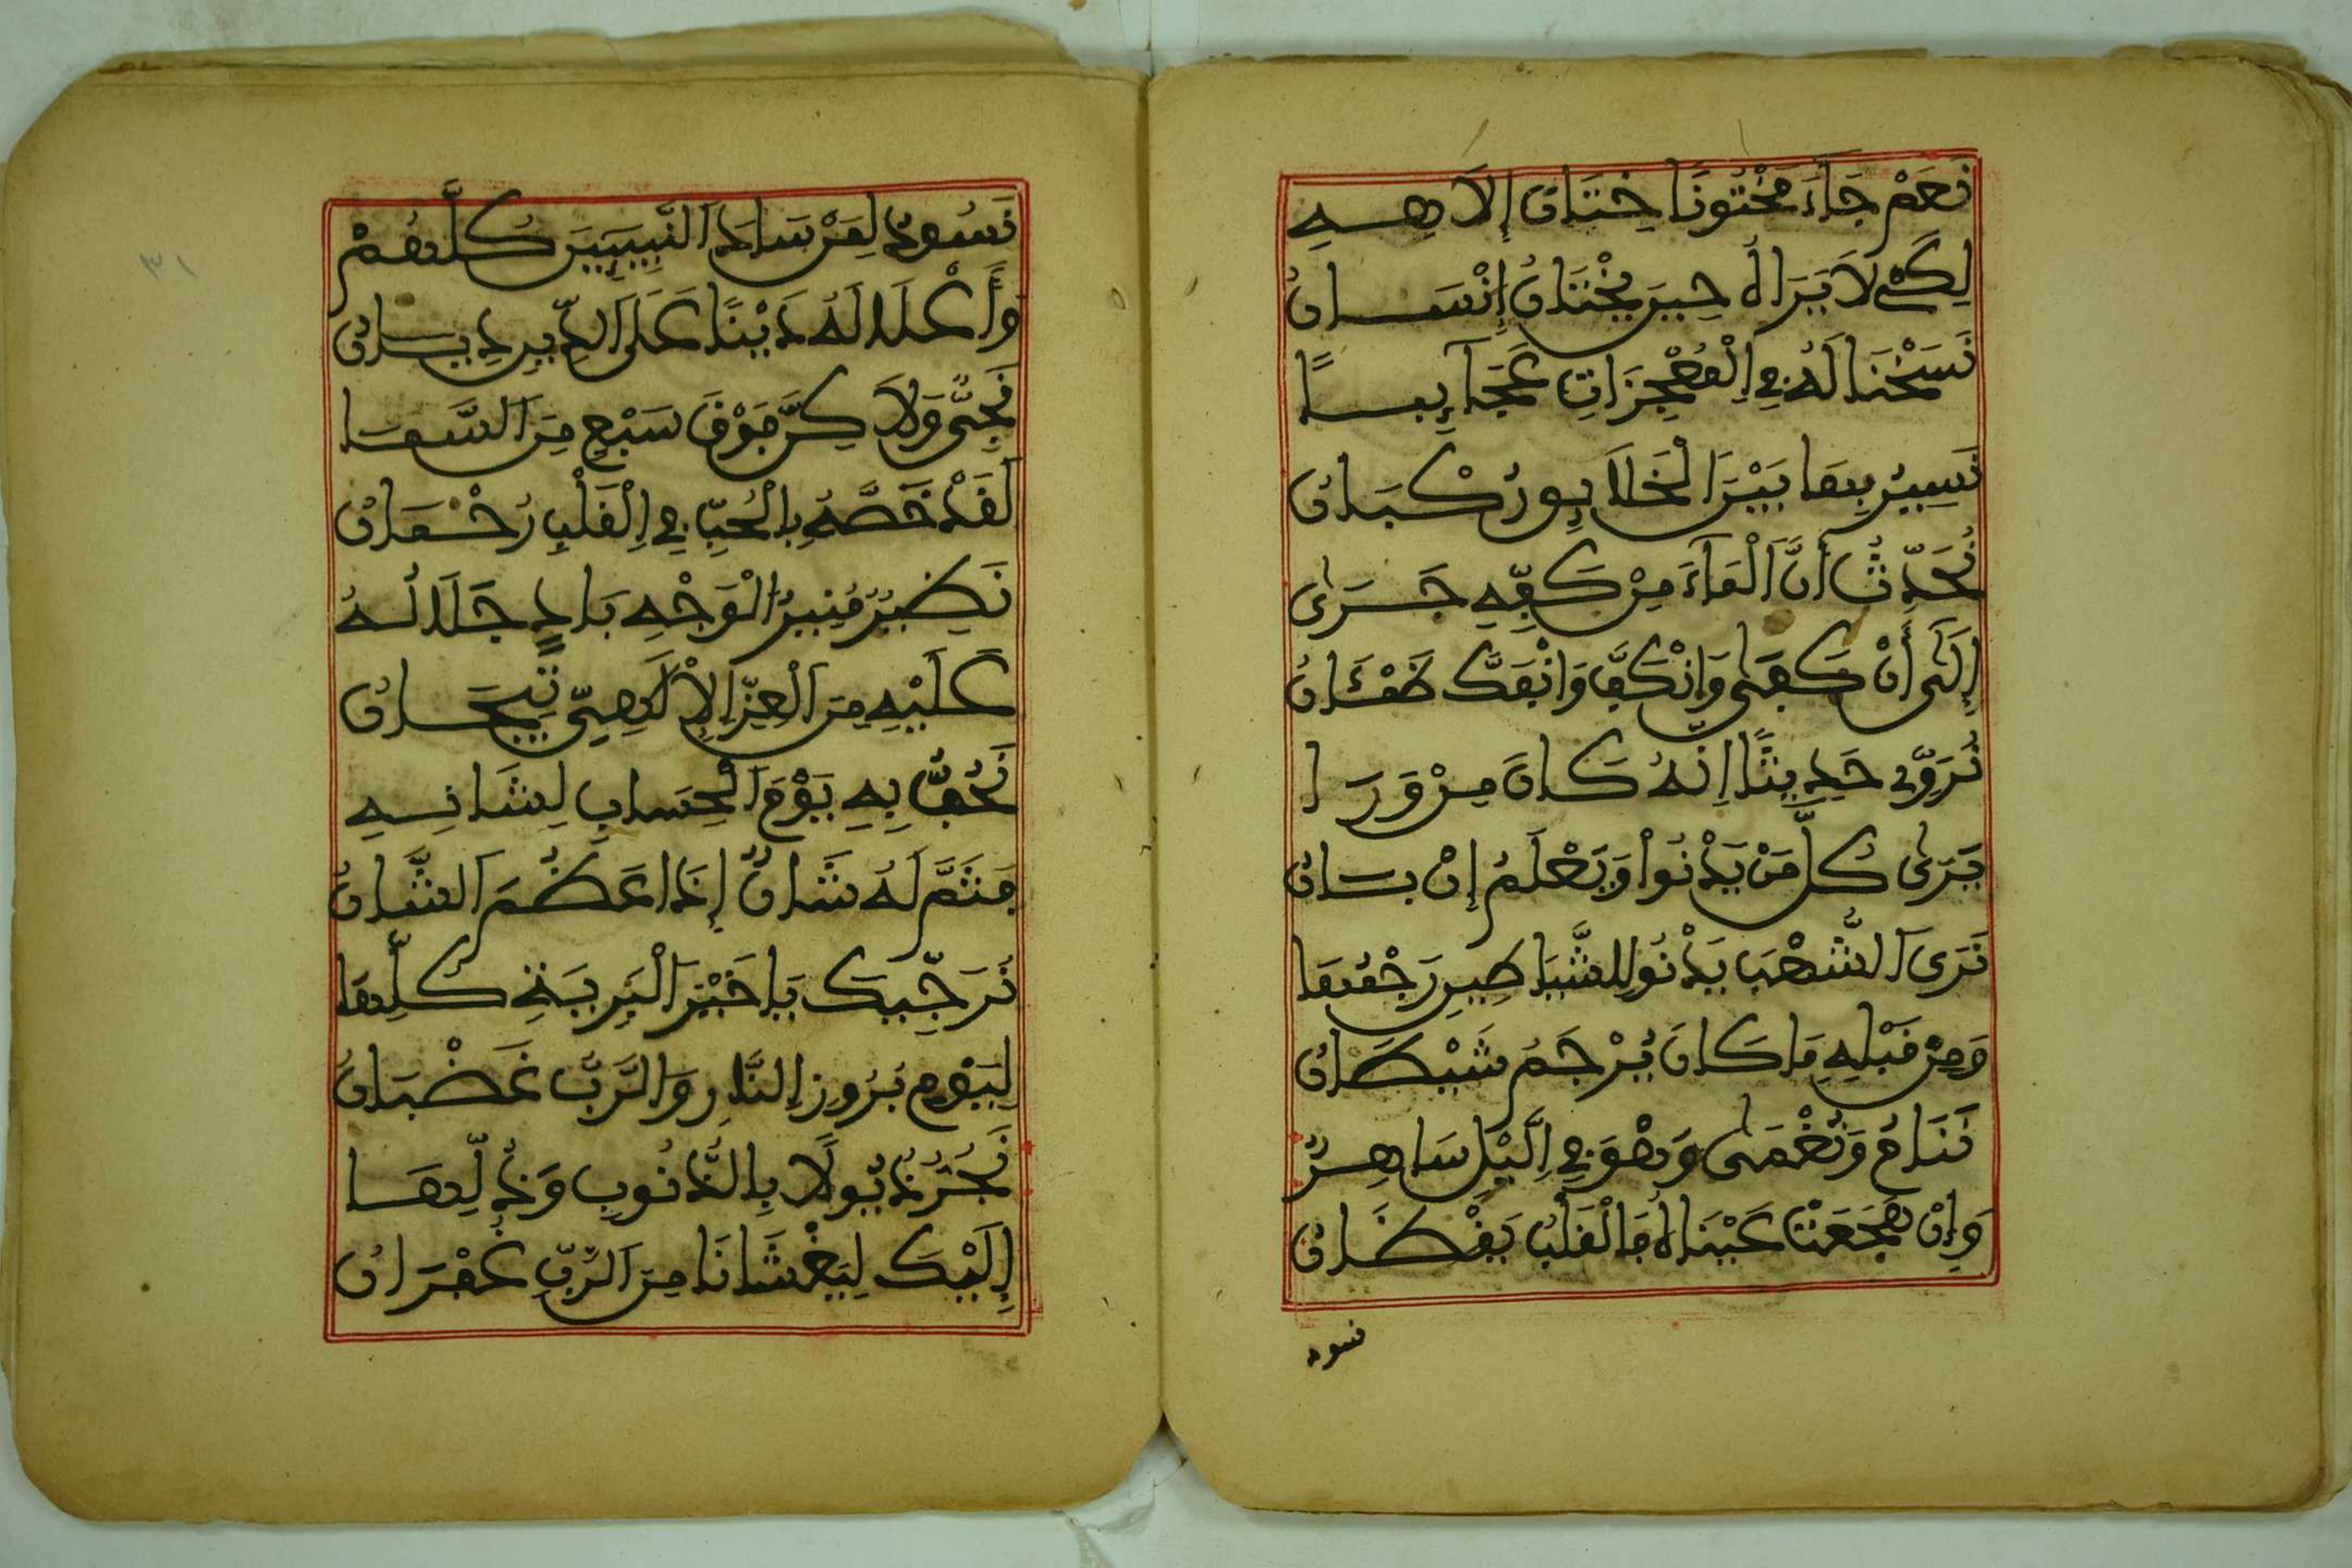 نَعَمْ جَآءَ مَخْتُونًا خِتَانَ إِلَاهِهِ
لِكَيْ لَا يَرَاهُ حِينَ يُخْتَانُ إِنْسَانُ
نَسَخْنَا لَهُ فِي اِلْمُعْجِزَاتِ عَجَآئِبًا
نَسِيرُ بِهَا بَيْنَ الْخَلَائِقِ رُكْبَانُ
نُحَدِّثُ أَنَّ اَلْمَآءَ مِنْ كَفِّهِ جَرَىٰ
إِلَىٰ أَنْ كَفَىٰ وَانْكَفَّ وَانْفَكَّ ظَمْئَانُ
نُرَوِّي حَدِيثًا اِنَّهُ كَانَ مِنْ وَرَا
يَرَىٰ كُلَّ مَنْ يَدْنُواْ وَيَعْلَمُ إِنْ بَانُ
نَرَى اَلشُّهْبَ يَدْنُو لِلشَّيَاطِينِ رَجْمُهَا
وَمِنْ قَبْلِهِ مَا كَانَ يُرْجَمُ شَيْطَانُ
نَنَامُ وَنُغْمَىٰ وَهْوَ فِي اِلَّيْلِ سَاهِرٌ
وَإِنْ هَجَعَتْ عَيْنَاهُ فَالْقَلْبُ يَقْظَانُ
نسود
نَسُودُ بِمَنْ سَادَ اَلنَّبِيِّينَ كُلَّهُمْ
وَأَعْلَا لَهُ دَيْنًا عَلَى اَلدِّينِ دِيَّانُ
نَجِيٌّ وَلَاكِنْ فَوْقَ سَبْعٍ مِنَ اَلسَّمَا
لَقَدْ خَصَّهُ بِالْحُبِّ فِي اِلْقَلْبِ رُحْمَانُ
نَضِيرٌ مُنِيرُ الْوَجْهِ بَادٍ جَلَالُهُ
عَلَيْهِ مِنَ اَلْعِزِّ اِلْإِلَاهِيِّ تِيجَانُ
نَحُفُّ بِهِ يَوْمَ اَلْحِسَابِ لِشَانِهِ
فَثَمَّ لَهُ شَانٌ إِذَا عَظُمَ اَلشَّانُ
نُرَجِّيكَ يَا خَيْرَ اَلْبَرِيَّةِ كُلِّهَا
لِيَوْمِ بُرُوزِ اِلنَّارِ وَالرَّبُّ غَضْبَانُ
نَجُرُّ ذُيُولًا بِالذُّنُوبِ وَذُلِّهَا
إِلَيْكَ لِيَغْشَانَا مِنَ اَلرَّبِّ غُفْرَانُ